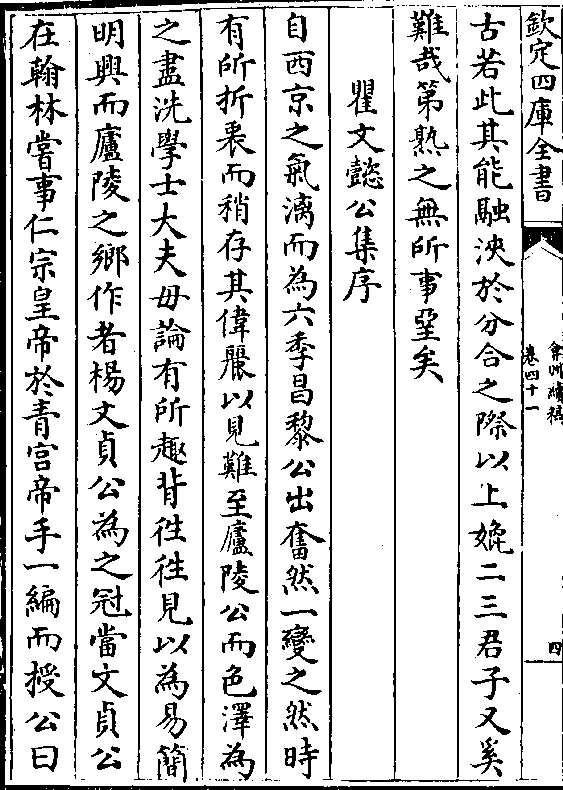 欽定四庫全書
弇州續稿
卷四十一
四
古若此其能融泱於分合之際以上媲二三君子又奚
難哉第熟之無所事堊矣
瞿文懿公集序
自西京之氣漓而為六季昌黎公出奮然一變之然時
有所折衷而稍存其偉麗以見難至廬陵公而色澤為
之盡洗學士大夫毋論有所趣背徃徃見以為易簡
明興而廬陵之鄉作者楊文貞公為之冠當文貞公
在翰林嘗事仁宗皇帝於青宫帝手一編而授公曰